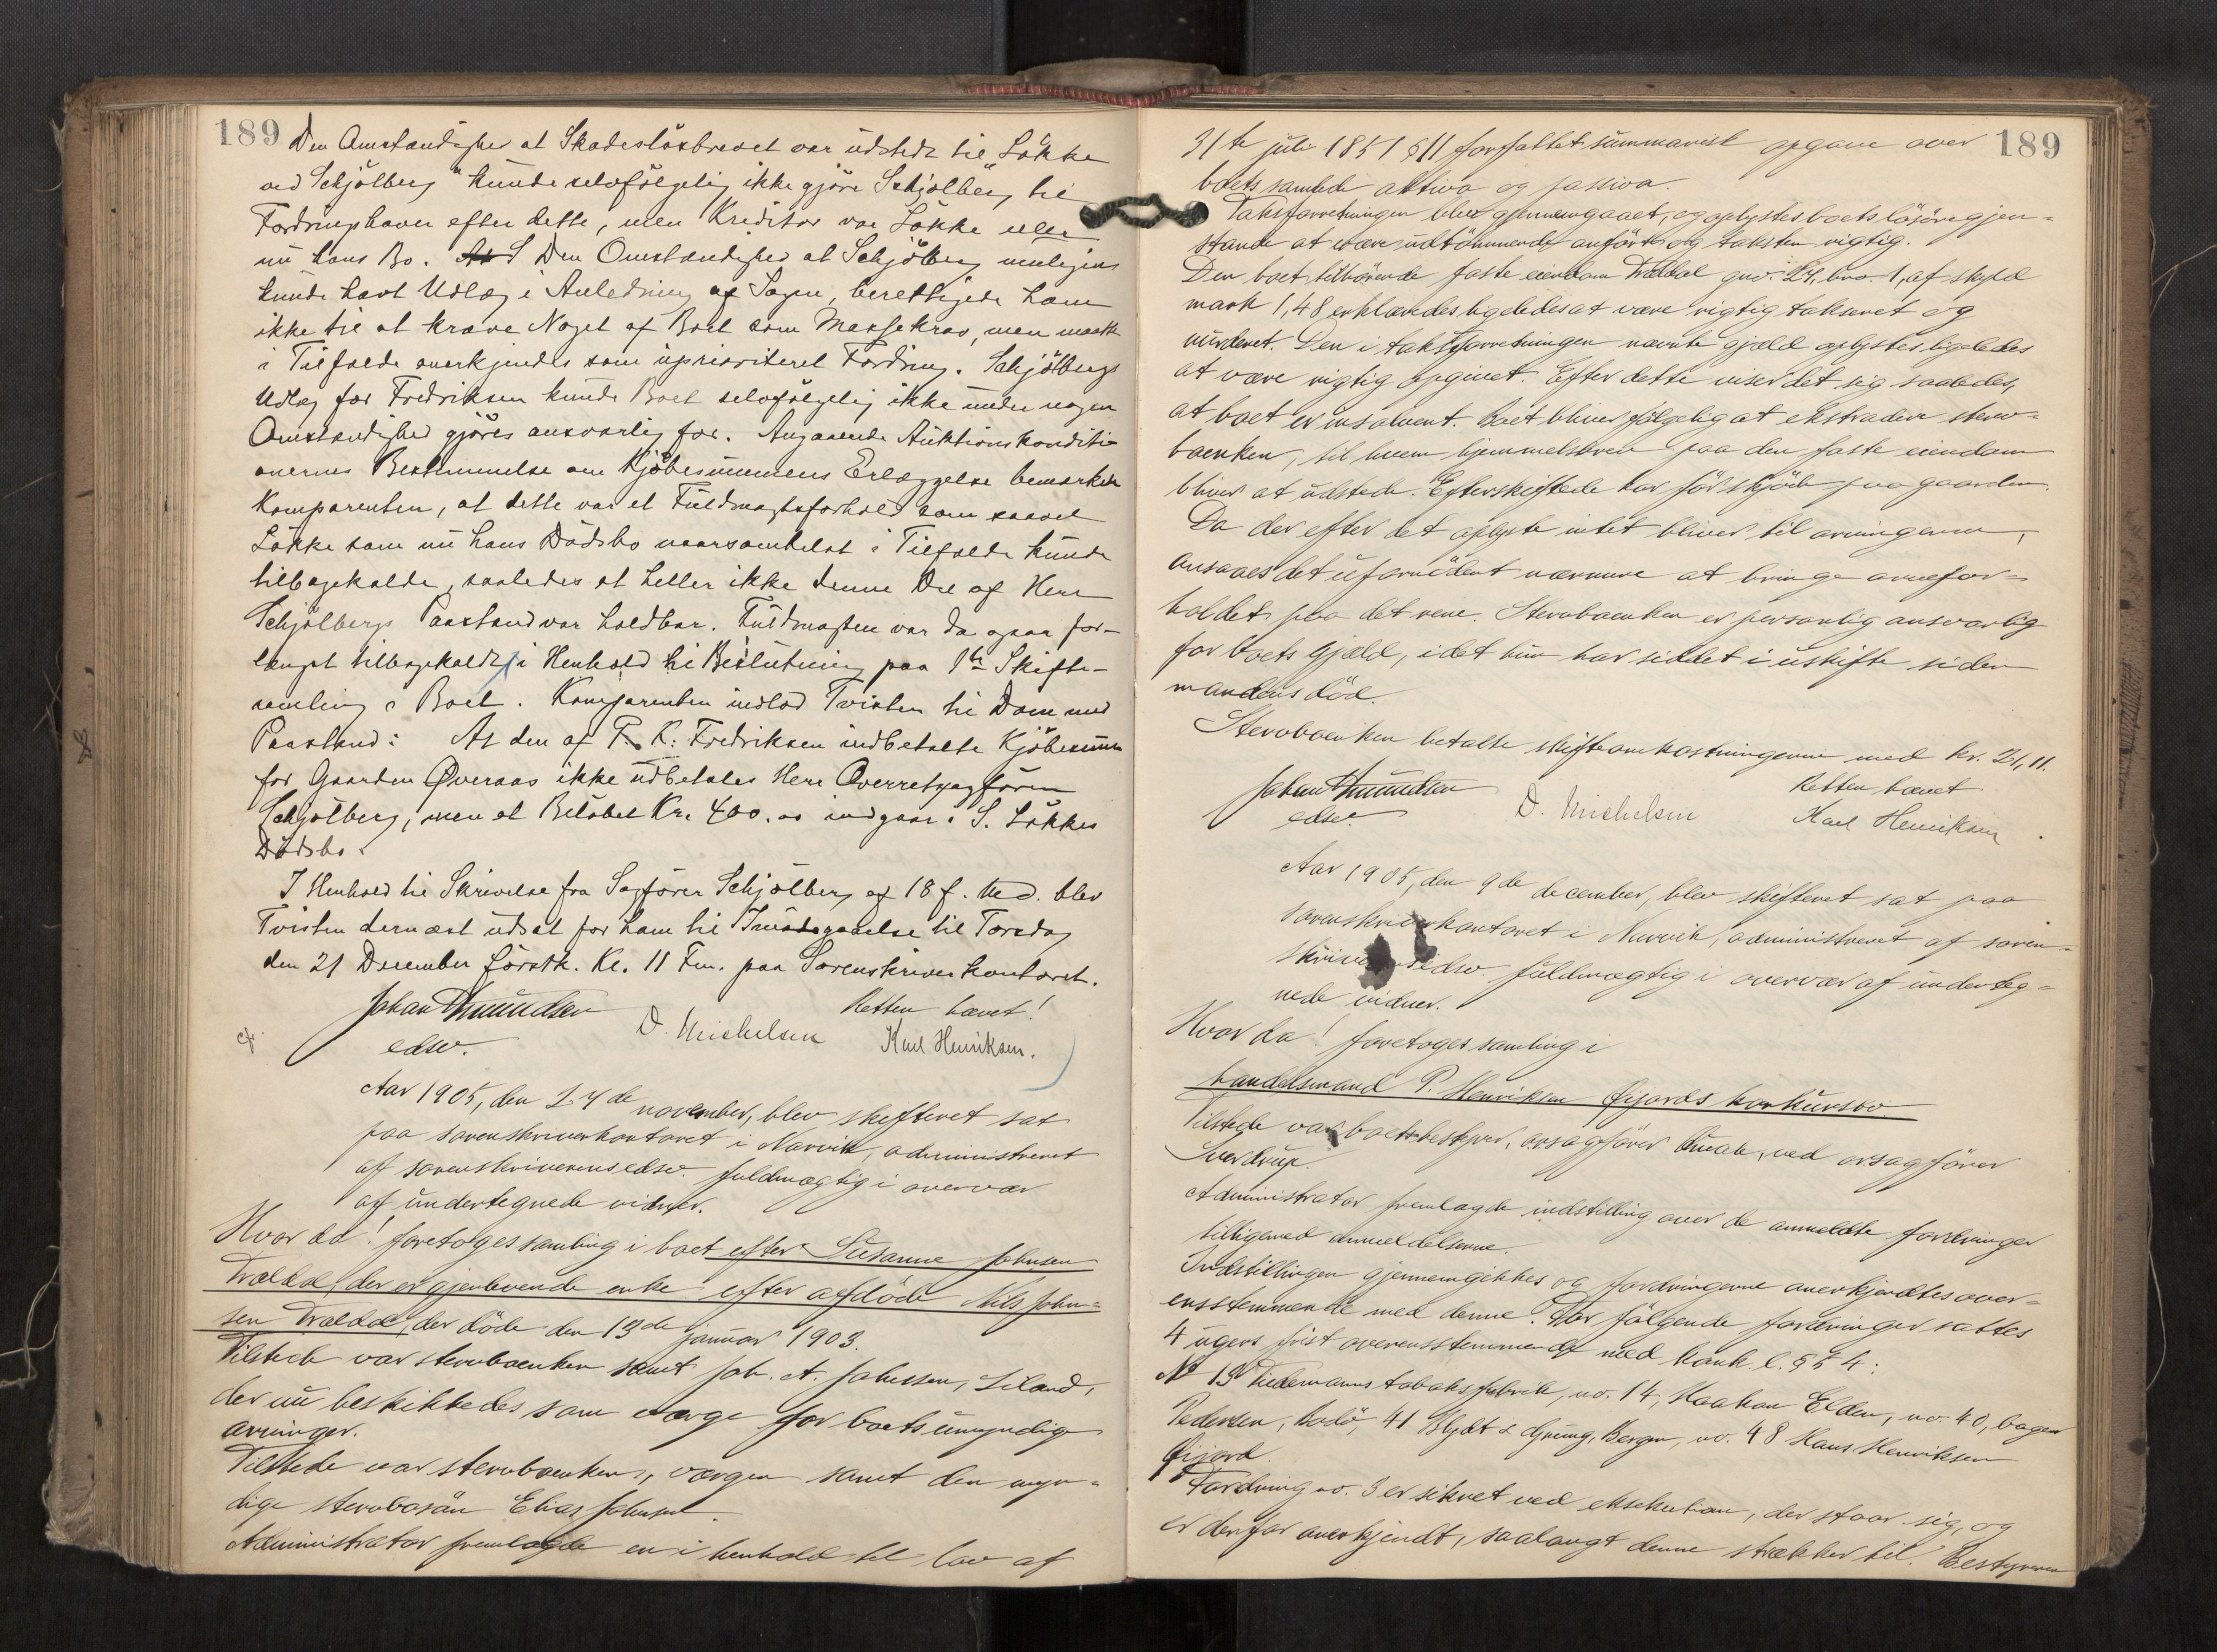 189
Den Omstændighed at Skadesløsbrevet var udstedt til "Løkke
ved Schjølberg" kunde selvfølgelig ikke gjøre Schjølberg til
Fordringshaver efter dette, men Kreditor var Løkke eller
nu hans Bo. Den Omstændighed at Schjølberg muligens
kunde havt Udlæg i Anledning af Sagen, berettigede ham
ikke til at kræve Noget af Boet som Massekrav, men maatte
i Tilfælde anerkjendes som uprioriteret Fordring. Schjølbergs
Udlæg for Fredriksen kunde Boet selvfølgelig ikke under nogen
Omstændighed gjøres ansvarlig for. Angaaende Auktionskonditi-
onernes Bestemmelse om Kjøbesummens Erlæggelse bemærkede
Komparenten, at dette var et Fuldmagtsforhold som saavel
Løkke som nu hans Dødsbo naarsomhelst i Tilfælde kunde
tilbagekalde, saaledes at heller ikke denne Del af Herr
Schjølbergs Paastand var holdbar. Fuldmagten var da ogsaa for-
længst tilbagekaldt i Henhold til Beslutning paa 1ste Skifte-
samling i Boet. Komparenten indlod Tvisten til Dom med
Paastand: At den af P. K. Fredriksen indbetalte Kjøbesum
for Gaarden Øveraas ikke udbetales Herr Overretssagfører
Schjølberg, men at Beløbet Kr. 400.00 indgaar i S. Løkkes
Dødsbo.
I Henhold til Skrivelse fra Sagfører Schjølberg af 18 f. Md. blev
Tvisten dernæst udsat for ham til Imødegaaelse til Torsdag
den 21 December førstk. Kl. 11 Fm. paa Sorenskriverkontoret.
Retten hævet!
Johan Amundsen
edsv.
D. Michelsen
Karl Henriksen.
Aar 1905, den 27de november, blev skifteret sat
paa sorenskriverkontoret i Narvik, administreret
af sorenskriverens edsv. fuldmægtig i overvær
af undertegnede vidner.
Hvor da! foretoges samling i boet efter Susanne Johnsen
Trældal, der er gjenlevende enke efter afdøde Nils John-
sen Trældal, der døde den 13de januar 1903.
Tilstede var stervboenken samt Joh. A. Johnssen, Liland,
der nu beskikkedes som værge for boets umyndige
arvinger.
Tilstede var stervboenken, værgen samt den myn-
dige stervbosøn Elias Johnsen.
Administrator fremlagde en i henhold til lov af
189
31te juli 1851 § 11 forfattet summarisk opgave over
boets samlede aktiva og passiva.
Taksforretningen blev gjennemgaaet, og oplystes boets løsøregjen-
stande at være udtømmende anført og taksten rigtig.
Den boet tilhørende faste eiendom Trældal gno. 24, bno. 1, af skyld
mark 1,48 erklæredes ligeledes at være rigtig takseret og
vurderet. Den i taksforretningen nævnte gjæld oplystes ligeledes
at være rigtig opgivet. Efter dette viser det sig saaledes,
at boet er insolvent. Boet bliver følgelig at ekstradere sterv-
boenken, til hvem hjemmelsbrev paa den faste eiendom
bliver at udstede. Efterskiftede har før skjøde paa gaarden.
Da der efter det oplyste intet bliver til arvingerne,
ansaaes det ufornødent nærmere at bringe arvefor-
holdet paa det rene. Stervboenken er personlig ansvarlig
for boets gjæld, idet hun har siddet i uskifte siden
mandens død.
Stervboenken betalte skifteomkostningerne med kr. 21,11.
Retten hævet
Johan Amundsen
edsv.
D. Michelsen
Karl Henriksen
Aar 1905, den 9de december, blev skifteret sat paa
sorenskriverkontoret i Narvik, administreret af soren-
skriverens edsv. fuldmægtig i overvær af underteg-
nede vidner.
Hvor da! foretoges samling i
handelsmand P. Henriksen Øijords konkursbo
Tilstede var boets bestyrer, o.r.sagfører Quale, ved o.r.sagfører
Sverdrup.
Administrator fremlagde indstilling over de anmeldte fordringer
tilligemed anmeldelserne.
Indstillingen gjennemgikkes og fordringerne anerkjendtes over-
ensstemmende med denne. For følgende fordringer sattes
4 ugers frist overensstemmende med konk. l. § 54:
No 13 Tiedemanns tobaksfabrik, no. 14, Haakon Elden, no. 40, bager
Pedersen, Bodø, 41 Blydt & Gjning, Bergen, no. 48 Hans Henriksen
Øijord.
Fordring no. 3 er sikret ved eksekution, der staar sig, og
er derfor anerkjendt, saalangt denne strækker til. Bestyreren